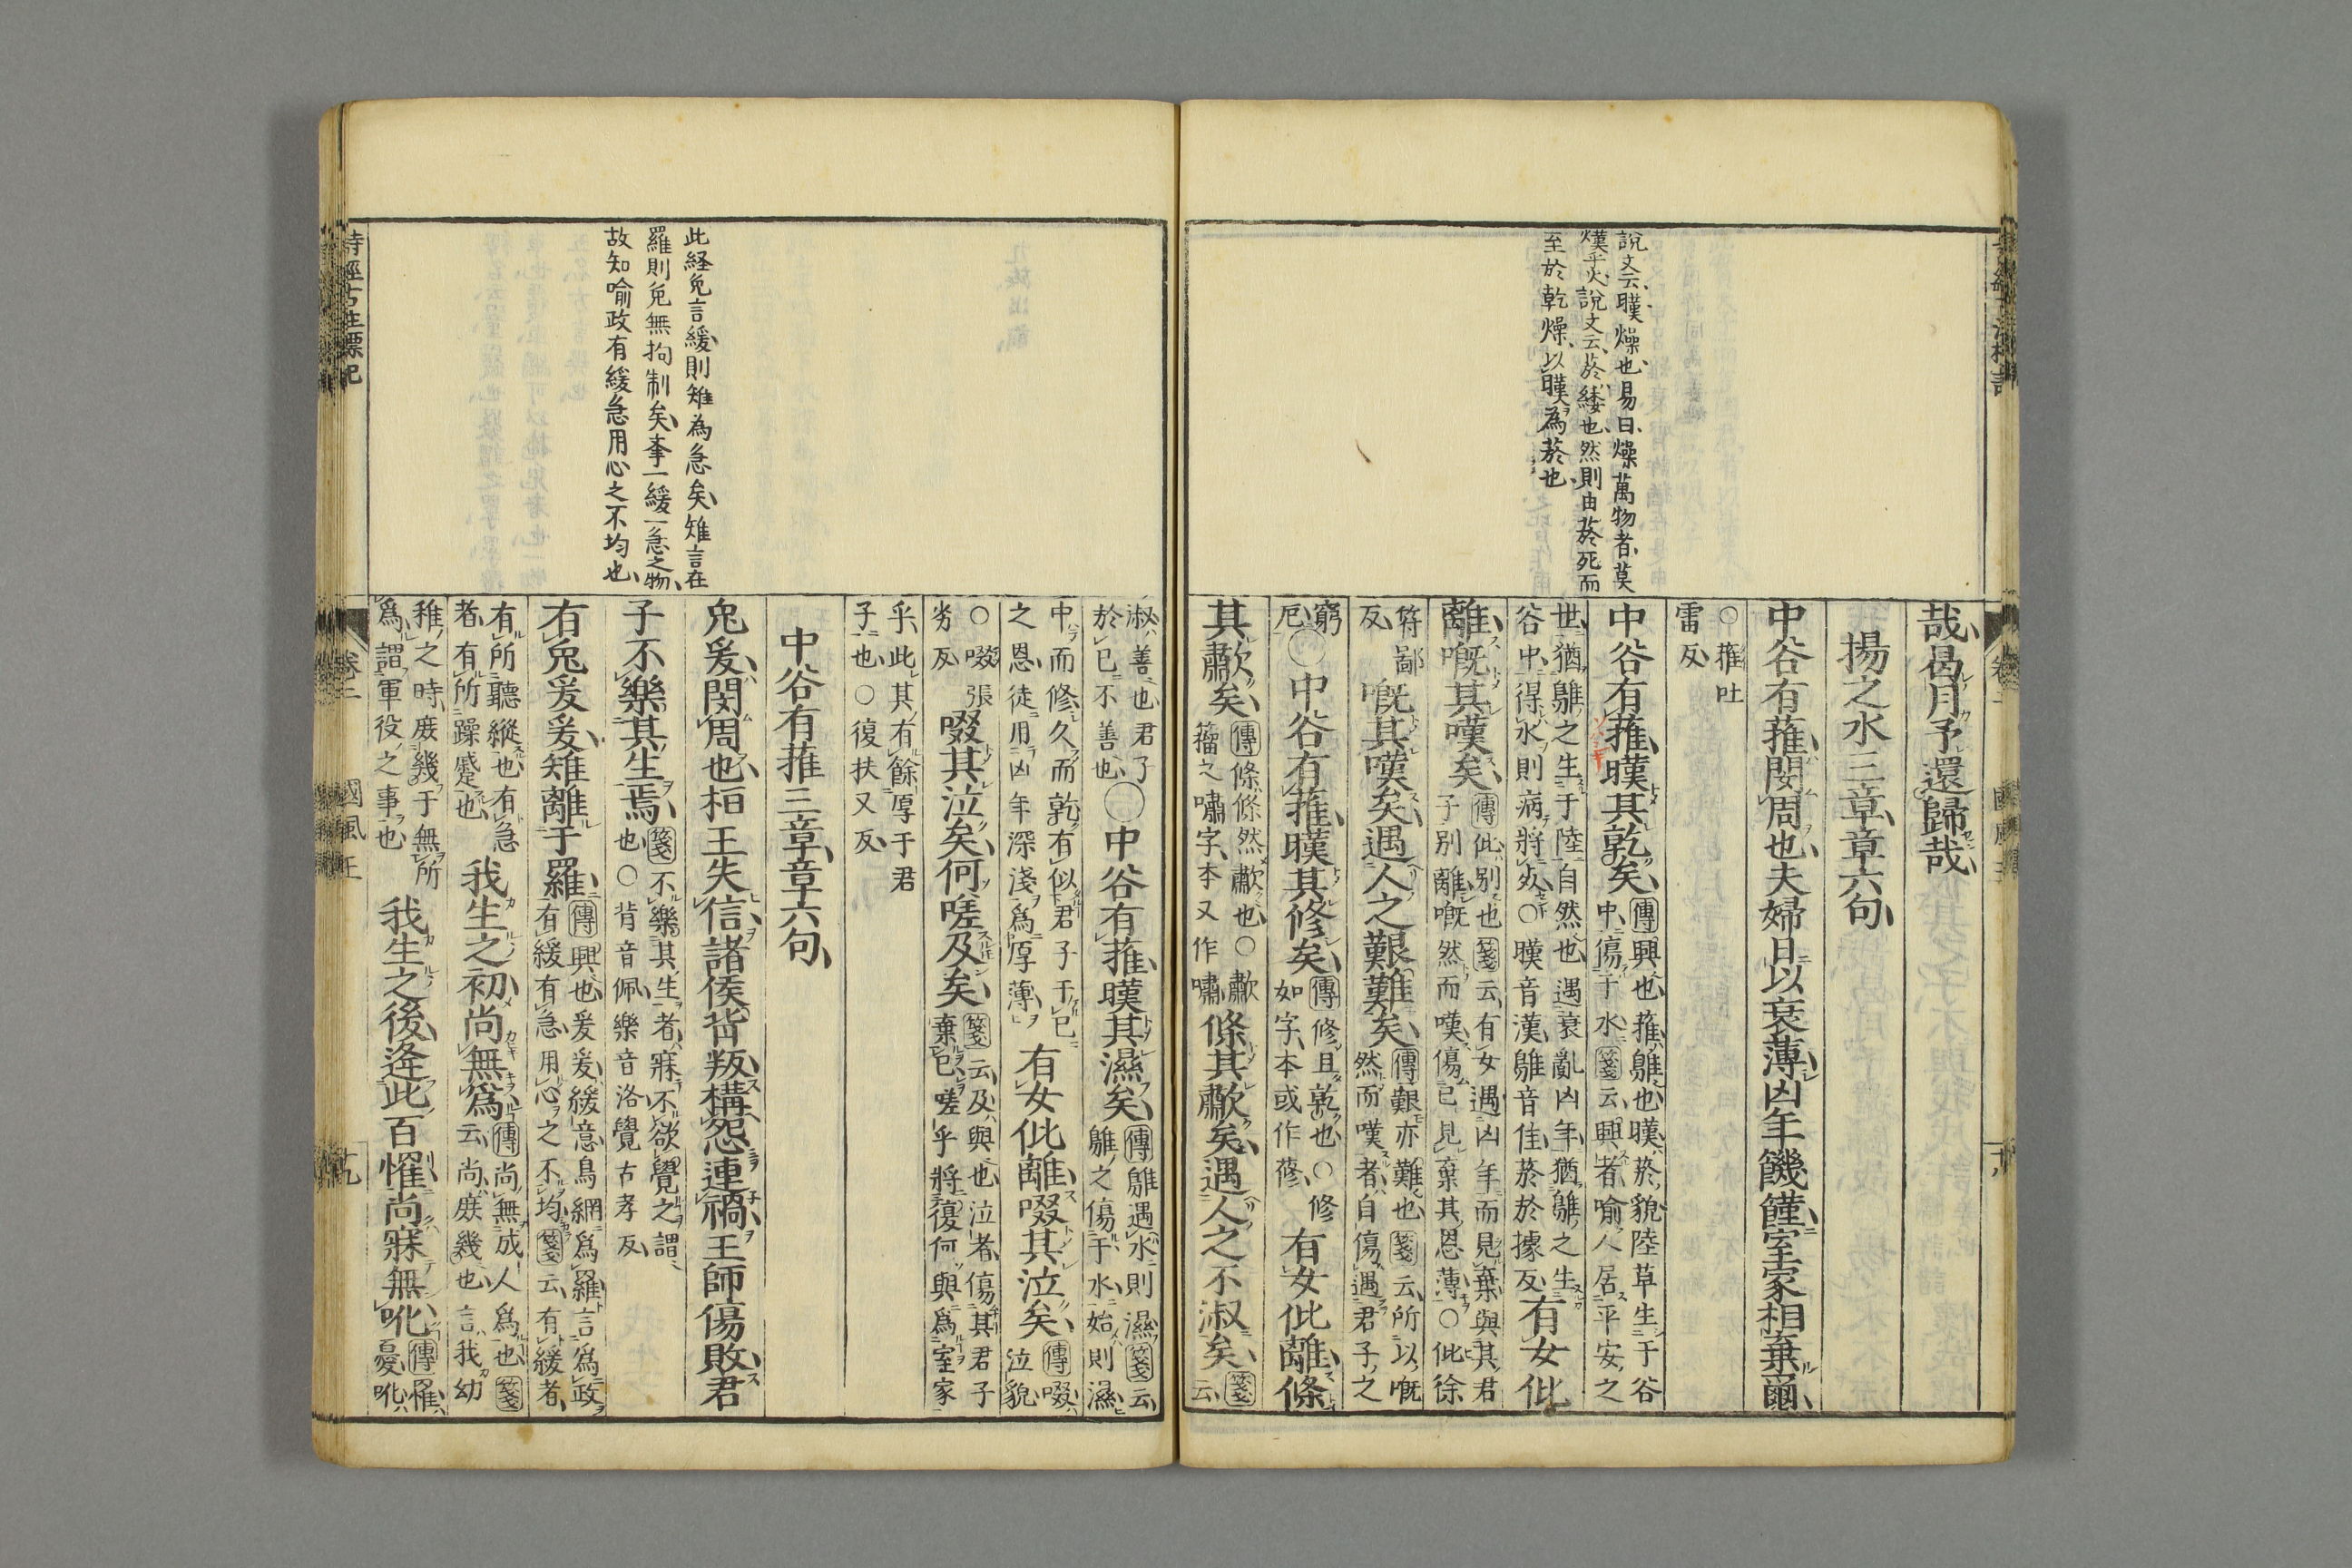 説文云、暵、燥也、易曰、燥萬物者、莫
熯乎火、説文云、菸、緌也、然則由菸死而
至於乾燥、以暵為菸也、
哉、曷月予還歸哉、
揚之水三章、章六句、
中谷有蓷、閔周也、夫婦日以衰薄、凶年饑饉、室家相棄爾、
○蓷吐
雷反、
中谷有蓷、暵其乾矣、
傳興也、蓷、鵻也、暵、菸貌、陸草生于谷
中、傷于水、箋云、興者、喻人居平安之
世、猶鵻之生于陸、自然也、遇衰亂凶年、猶鵻之生
谷中、得水則病將死、○暵音漢、鵻音佳、菸於據反、
有女仳
離、嘅其嘆矣、
傳仳、別也、箋云、有女遇凶年而見棄、與其君
子別離、嘅然而嘆、傷已見棄其恩薄、○仳徐
符鄙
反、
嘅其嘆矣、遇人之艱難矣、
傳艱亦難也、箋云、所以嘅
然而嘆者、自傷遇君子之
窮
厄、
○中谷有蓷、暵其修矣、
傳修、且乾也、○修
如字、本或作蓨、
有女仳離、條
其歗矣、
傳條、條然歗也、○歗
籀之嘯字、本又作嘯、
條其歗矣、遇人之不淑矣、
箋
云、
淑、善也、君子
於已不善也、
○中谷有蓷、暵其濕矣、
傳鵻遇水則濕、箋云、
鵻之傷于水、始則濕、
中而修、久而乾、有似君子于已
之恩、徒用凶年深淺為厚薄、
有女仳離、啜其泣矣、
傳啜、
泣貌、
○啜張
劣反、
啜其泣矣、何嗟及矣、
箋云、及、與也、泣者、傷其君子
棄已、嗟乎、將復何與為室家
乎、此其有餘厚于君
子也、○復扶又反、
中谷有蓷三章、章六句、
兔爰、閔周也、桓王失信、諸侯背叛、構怨連禍、王師傷敗、君
子不樂其生焉、
箋不樂其生者、寐不欲覺之謂
也、○背音佩、樂音洛、覺古孝反、
有兔爰爰、雉離于羅、
傳興也、爰爰、緩意、鳥網為羅、言為政
有緩有急、用心之不均、箋云、有緩者、
有所聽縱也、有急
者、有所躁蹙也、
我生之初、尚無為、
傳尚無成人為也、箋
云、尚、庶幾也、言我幼
稚之時、庶幾于無所
為、謂軍役之事也、
我生之後、逢此百罹、尚寐無吪、
傳罹、
憂、吪、
此経兔言緩、則雉為急矣、雉言在
羅、則兔無拘制矣、奉一緩一急之物、
故知喻政有緩急、用心之不均也、
詩經古註標記
卷二
國風 王
十九